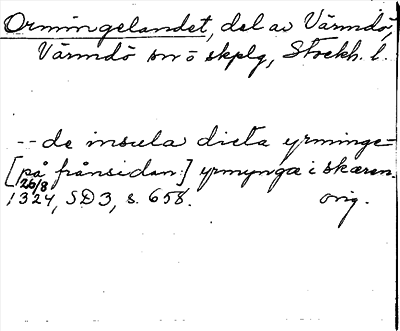 Ormingelandet, del av Värmdö,
Värmdö sn o skplg, Stockh. l.
-- de insula dicta yrminge=
[på frånsidan:] yrmynge i skæren.
26/8
1324, SD3, s. 658. orig.